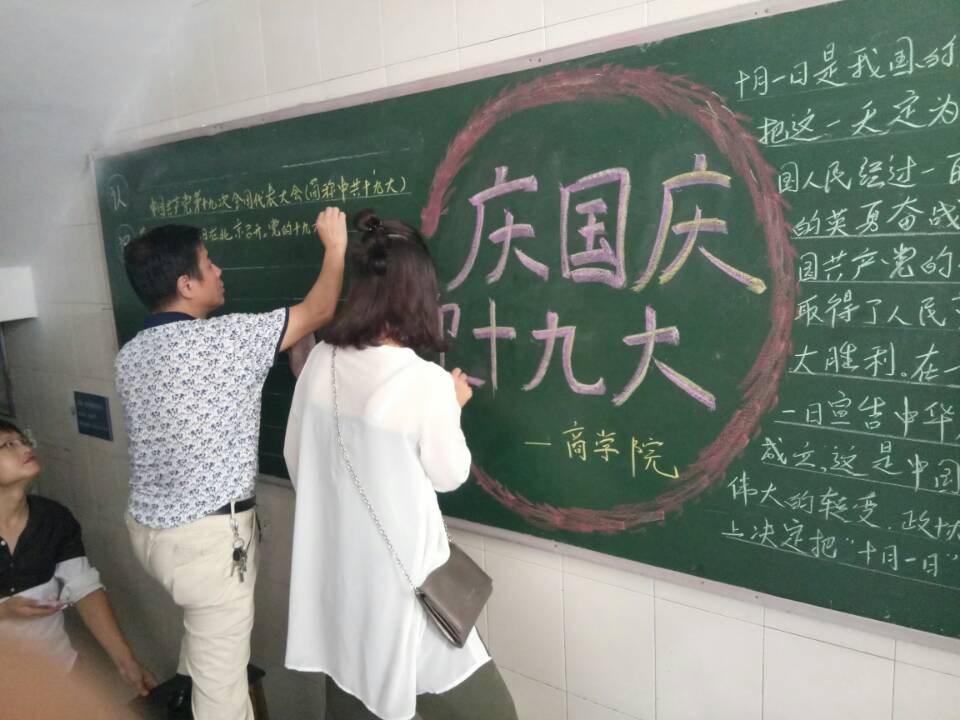 认 中国共产党第十九次全国代表大会(简称中共十九大)
日在北京召开。党的十九
庆国庆
迎十九大
—商学院
十月一日是我国的
把这一天定为
国人民经过一百
的英勇奋战
国共产党的
取得了人民
大胜利。在一
一日宣告中华
成立。这是中国
伟大的转变.政协
上决定把“十月一日”